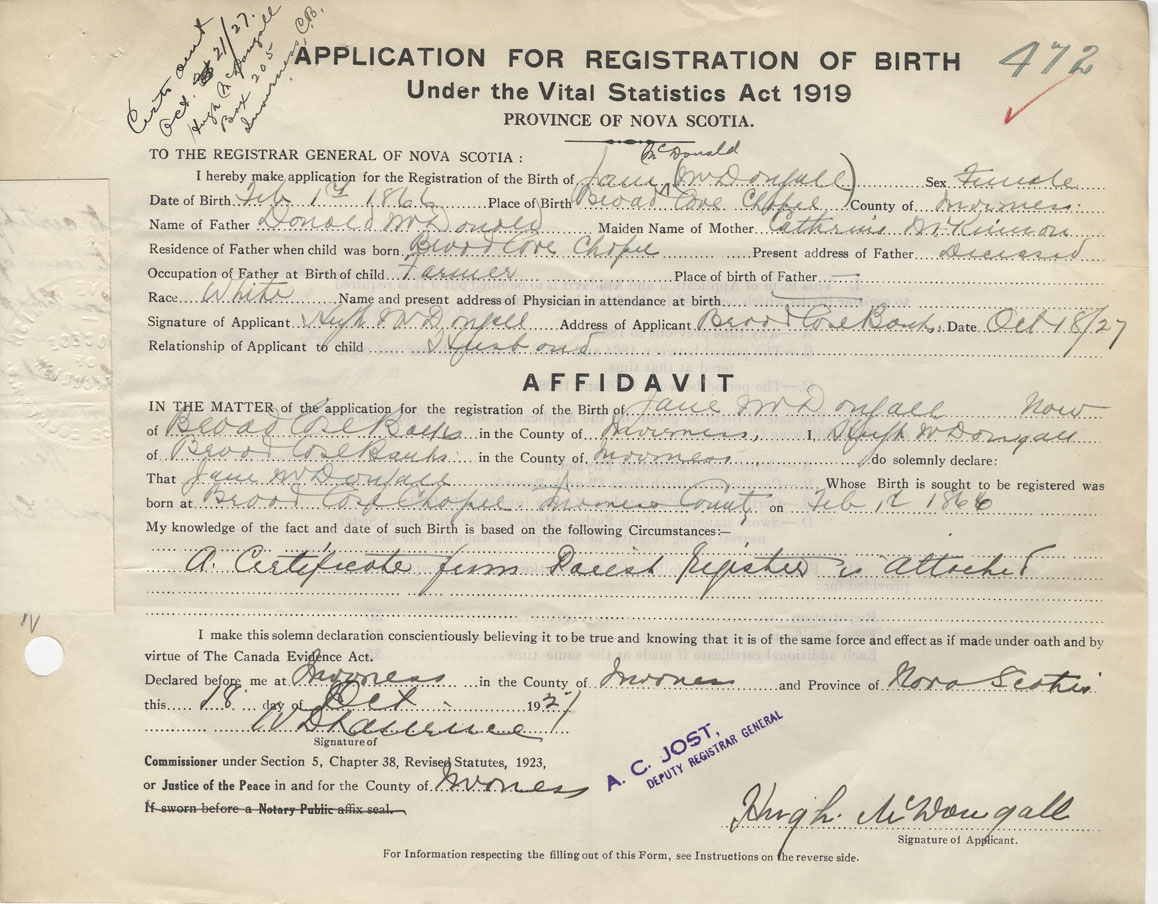 Certs out
Oct. 21/27.
Hugh McDougall
Box 205
Inverness, C.B.
472
APPLICATION FOR REGISTRATION OF BIRTH
Under the Vital Statistics Act 1919
PROVINCE OF NOVA SCOTIA.
TO THE REGISTRAR GENERAL OF NOVA SCOTIA :
McDonald
I hereby make application for the Registration of the Birth of Jane (McDougall) Sex Female
Date of Birth Feb 1st 1866 Place of Birth Broad Cove Chapel County of Inverness.
Name of Father Donald McDonald Maiden Name of Mother Catherine McKinnon
Residence of Father when child was born Broad Cove Chapel Present address of Father Deceased
Occupation of Father at Birth of child Farmer Place of birth of Father —
Race White Name and present address of Physician in attendance at birth —
Signature of Applicant Hugh McDougall Address of Applicant Broad Cove Banks. Date Oct 18/27
Relationship of Applicant to child Husband
AFFIDAVIT
IN THE MATTER of the application for the registration of the Birth of Jane McDougall Now
of Broad Cove Banks in the County of Inverness, I, Hugh McDougall
of Broad Cove Banks in the County of Inverness do solemnly declare:
That Jane McDougall Whose Birth is sought to be registered was
born at Broad Cove Chapel Inverness County on Feb 1st 1866
My knowledge of the fact and date of such Birth is based on the following Circumstances:—
A. Certificate from Parish Register is Attached
I make this solemn declaration conscientiously believing it to be true and knowing that it is of the same force and effect as if made under oath and by
virtue of The Canada Evidence Act.
Declared before me at Inverness in the County of Inverness and Province of Nova Scotia
this 18 day of Oct. 1927
W D Lawrence
Signature of
Commissioner under Section 5, Chapter 38, Revised Statutes, 1923,
or Justice of the Peace in and for the County of Inverness
If sworn before a Notary Public affix seal.
A. C. JOST,
DEPUTY REGISTRAR GENERAL
Hugh. McDougall
Signature of Applicant.
For Information respecting the filling out of this Form, see Instructions on the reverse side.